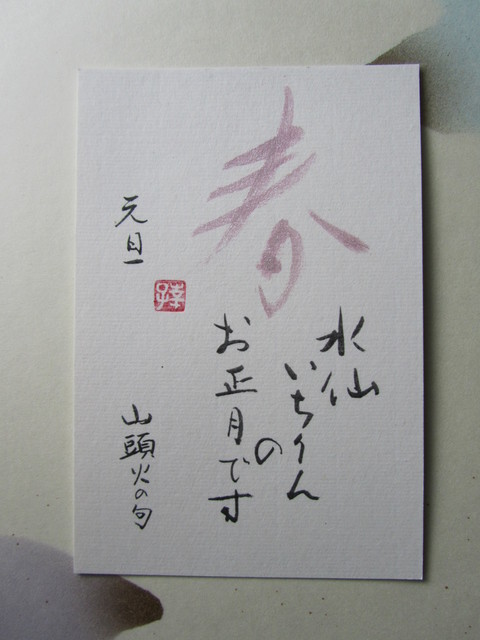 春
水仙
いちりん
の
お正月です
元旦
山頭火の句